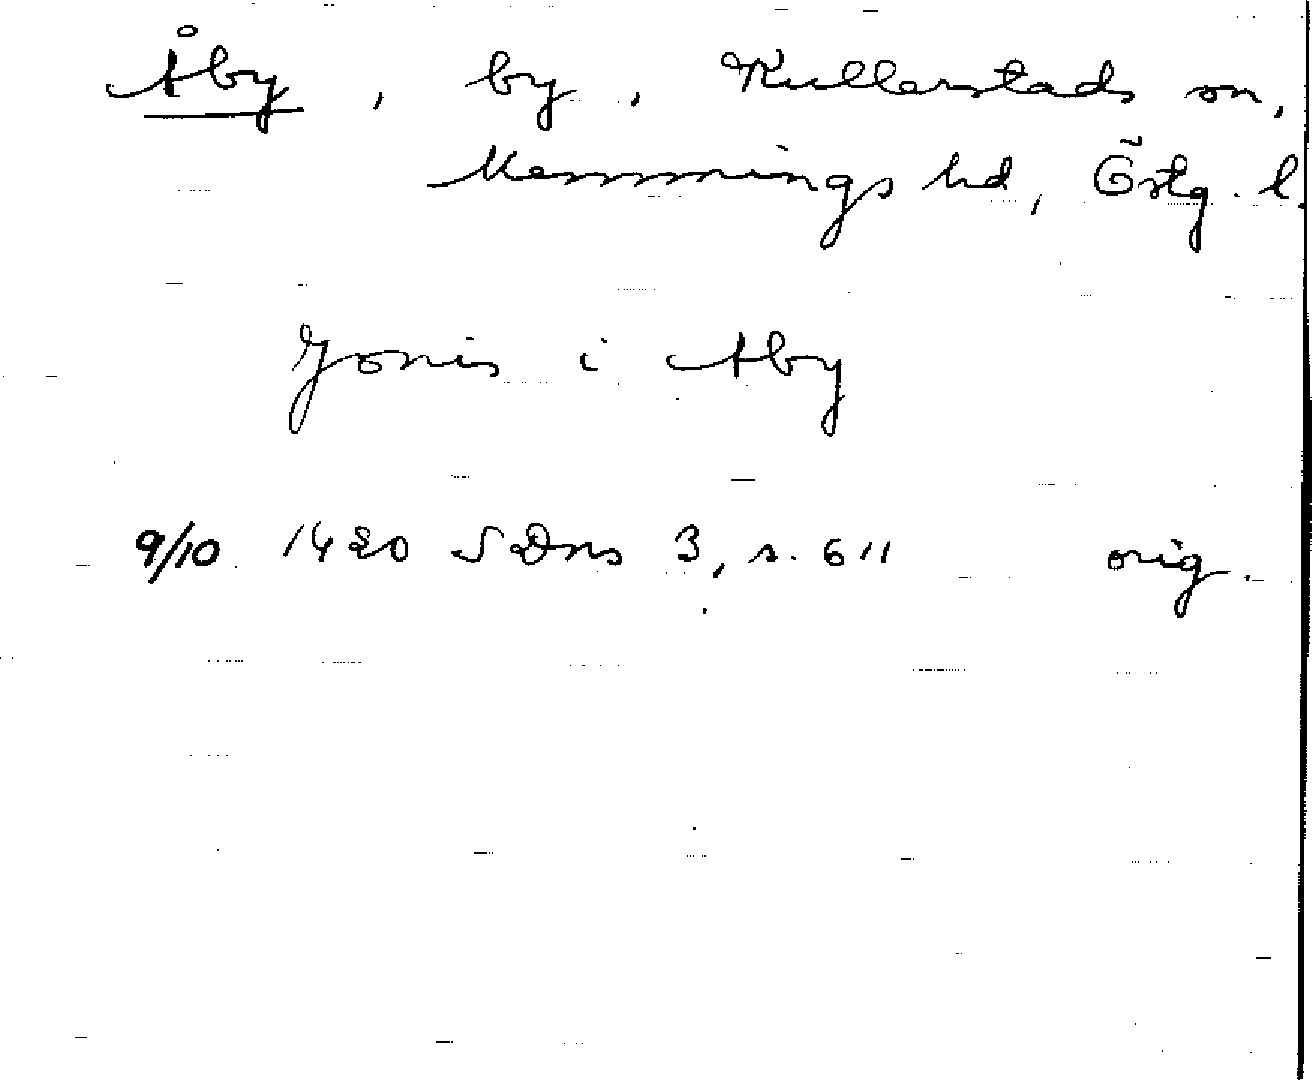 Åby, by, Kullerstads sn,
Memmings hd, Östg. l.
Jonis i Aby
9/10 1420 SDns 3, s. 611 orig.